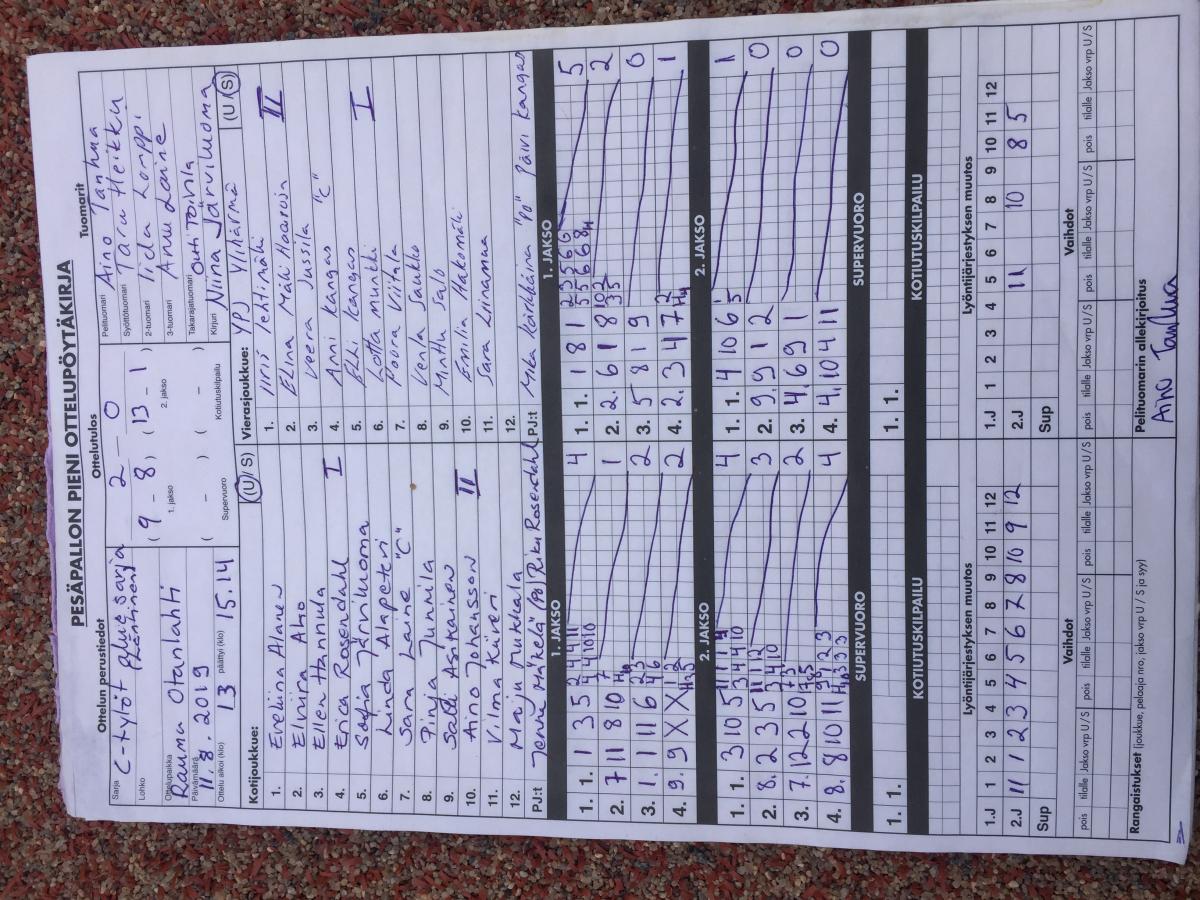 PESÄPALLON PIENI OTTELUPÖYTÄKIRJA
Ottelun perustiedot
Sarja C-tytöt aluesarja
Lohko Läntinen
Ottelupaikka Rauma Otanlahti
Päivämäärä 11.8.2019
Ottelu alkoi (klo) 13 päättyi (klo) 15.14
Ottelutulos
2 - 0
( 9 - 8 , 13 - 1 )
1. jakso 2. jakso
( - ) ( - )
Supervuoro Kotiutuskilpailu
Tuomarit
Pelituomari Aino Tanhua
Syöttötuomari Taru Heikku
2-tuomari Iida Lomppi
3-tuomari Anu Laine
Takarajatuomari Outi Toivila
Kirjuri Niina Järviluoma
Kotijoukkue: (U / S)
1. Eveliina Alanen
2. Elviira Aho
3. Ellen Hannula
4. Erica Rosendahl I
5. Sofia Järviluoma
6. Linda Alapeteri
7. Sara Laine "C"
8. Pinja Junnila
9. Salli Asikainen
10. Aino Johansson II
11. Vilma Käveri
12. Maiju Nukkala
PJ:t Jenni Mäkelä (Po) Riku Rosendahl
Vierasjoukkue: YPJ Ylihärmä (U / S)
1. Iiris Lehtimäki II
2. Elna Mäki-Haapoin
3. Veera Jussila
4. Anni Kangas "C"
5. Elli Kangas I
6. Lotta Muntti
7. Poora Viitala
8. Venla Saukko
9. Minttu Salo
10. Emilia Hakomäki
11. Sara Liinamaa
12.
PJ:t Mika Kärkkäinen "Po" Päivi Kangas
1. JAKSO 1. JAKSO
1. 1. 1 3 5 4
2. 7 11 8 10 1
3. 1. 1 11 6 2
4. 9. 9 X X 2
1. 1. 1 8 1 5
2. 2. 6 1 8 2
3. 5 8 1 9 0
4. 2. 3 4 7 1
2. JAKSO 2. JAKSO
1. 1. 3 10 5 4
2. 8. 2 3 5 3
3. 7. 12 2 10 2
4. 8. 8 10 11 4
1. 1. 4 10 6 1
2. 9. 9 1 2 0
3. 4. 6 9 1 0
4. 4. 10 4 11 0
SUPERVUORO SUPERVUORO
1. 1. 1. 1.
KOTIUTUSKILPAILU KOTIUTUSKILPAILU
Lyöntijärjestyksen muutos Lyöntijärjestyksen muutos
1.J 1 2 3 4 5 6 7 8 9 10 11 12 1.J 1 2 3 4 5 6 7 8 9 10 11 12
2.J 11 1 2 3 4 5 6 7 8 10 9 12 2.J 11 10 8 5
Sup Sup
Vaihdot Vaihdot
pois tilalle Jakso vrp U / S pois tilalle Jakso vrp U / S pois tilalle Jakso vrp U / S
tilalle Jakso vrp U / S pois tilalle Jakso vrp U / S pois tilalle Jakso vrp U / S
Rangaistukset (joukkue, pelaaja nro, jakso vrp U / S ja syy)
Pelituomarin allekirjoitus
Aino Tanhua